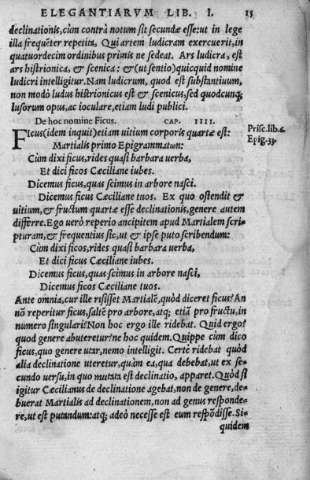 ELEGANTIARVM LIB. I. 15
declinationis, cùm contrà notum sit secundæ esse: ut in lege
illa frequẽter repetita. Qui artem ludicram exercuerit, in
quatuordecim ordinibus primis ne sedeat. Ars ludicra, est
ars histrionica, & scenica: & (ut sentio) quicquid nomine
ludicri intelligitur. Nam ludicrum, quod est substantiuum,
non modò ludus histrionicus est & scenicus, sed quodcunq;
lusorum opus, ac ioculare, etiam ludi publici.
De hoc nomine Ficus. CAP. IIII.
Ficus (idem inquit) etiam uitium corporis quartæ est:
Prisc. lib. 6.
Martialis primo Epigrammatum:
Epig. 33.
Cùm dixi ficos, rides quasi barbara uerba,
Et dici ficos Cæciliane iubes.
Dicemus ficus, quas scimus in arbore nasci.
Dicemus ficus Cæciliane tuos. Ex quo ostendit &
uitium, & fructum quartæ esse declinationis, genere autem
differre. Ego uerò reperio ancipitem apud Martialem scri-
pturam, & frequentius sic, ut & ipse puto scribendum:
Cùm dixi ficos, rides quasi barbara uerba,
Et dici ficus Cæciliane iubes.
Dicemus ficus, quas scimus in arbore nasci,
Dicemus ficos Cæciliane tuos.
Ante omnia, cur ille risisset Martialẽ, quòd diceret ficus? An
nõ reperitur ficus, saltẽ pro arbore, atq; etiã pro fructu, in
numero singulari? Non hoc ergo ille ridebat. Quid ergo?
quod genere abuteretur? ne hoc quidem. Quippe cùm dico
ficus, quo genere utar, nemo intelligit. Certè ridebat quòd
alia declinatione uteretur, quàm ea, qua debebat, ut ex se-
cundo uersu, in quo mutata est declinatio, apparet. Quòd si
igitur Cæcilianus de declinatione agebat, non de genere, de-
buerat Martialis ad declinationem, non ad genus responde-
re, ut est putandum: atq; adeò necesse est eum respõdisse. Si-
quidem